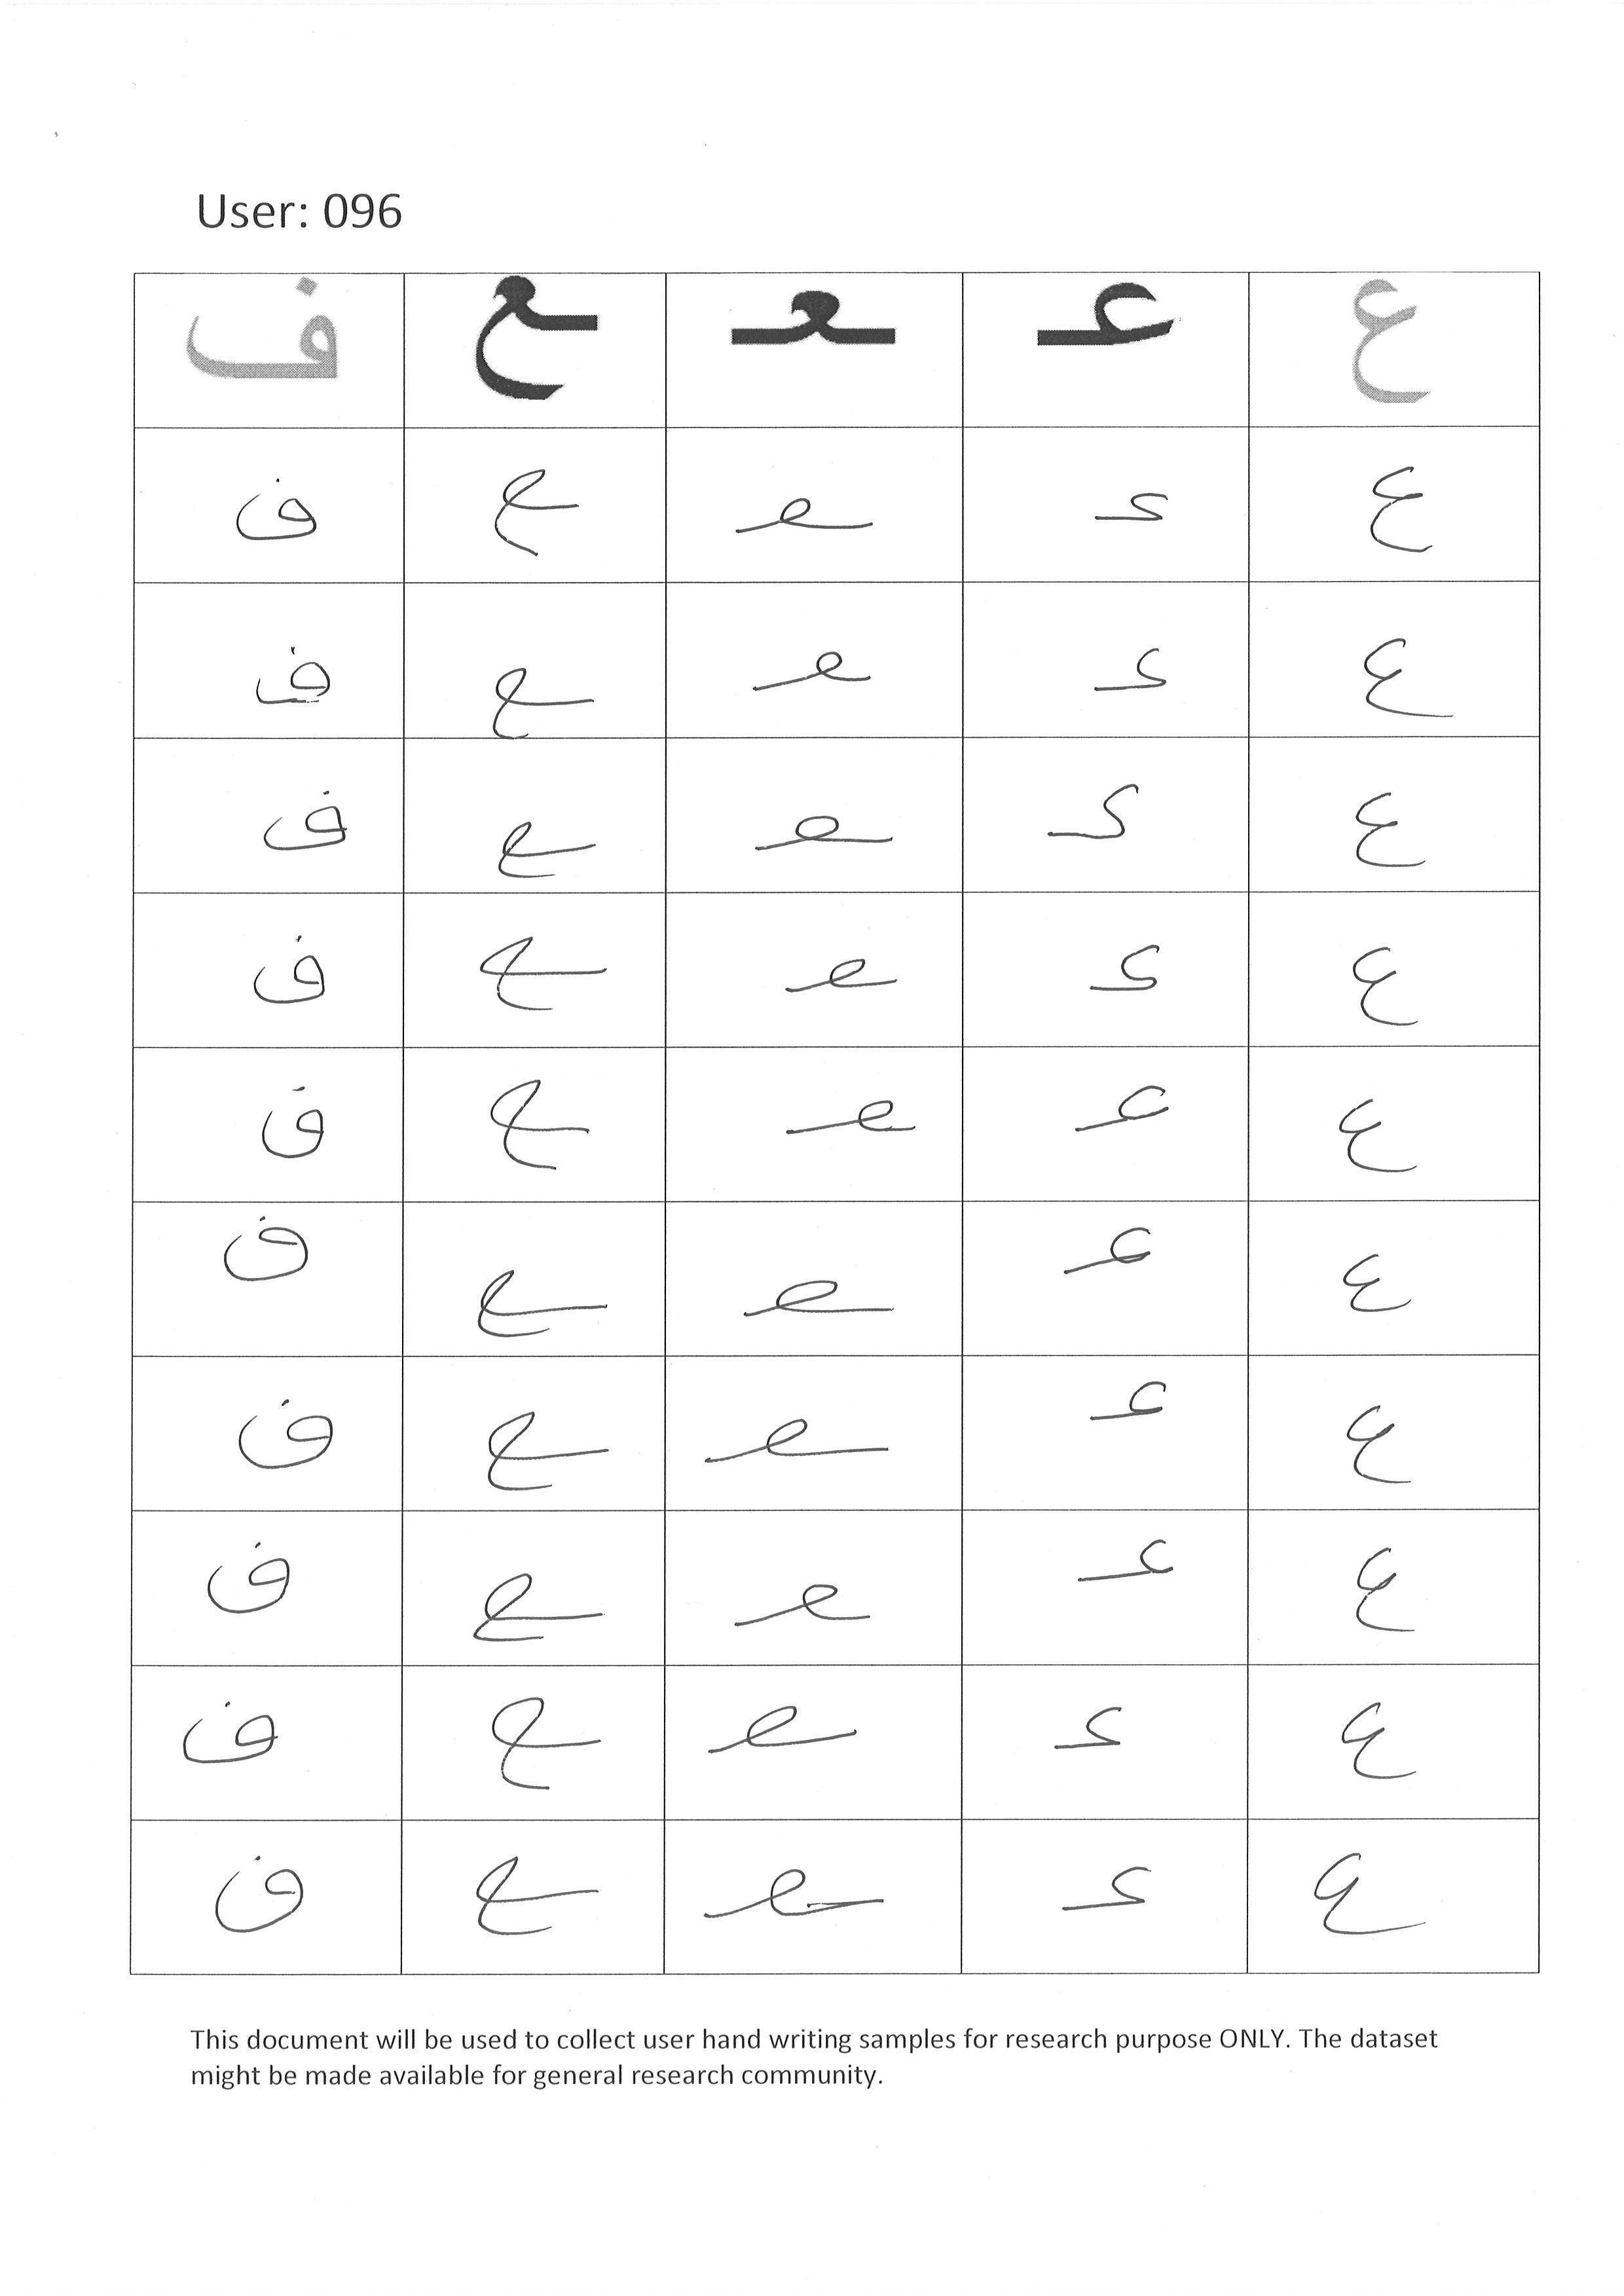 User: 096
ع عـ ـعـ ـع ف
ع عـ ـعـ ـع ف
ع عـ ـعـ ـع ف
ع عـ ـعـ ـع ف
ع عـ ـعـ ـع ف
ع عـ ـعـ ـع ف
ع عـ ـعـ ـع ف
ع عـ ـعـ ـع ف
ع عـ ـعـ ـع ف
ع عـ ـعـ ـع ف
ع عـ ـعـ ـع ف
This document will be used to collect user hand writing samples for research purpose ONLY. The dataset
might be made available for general research community.